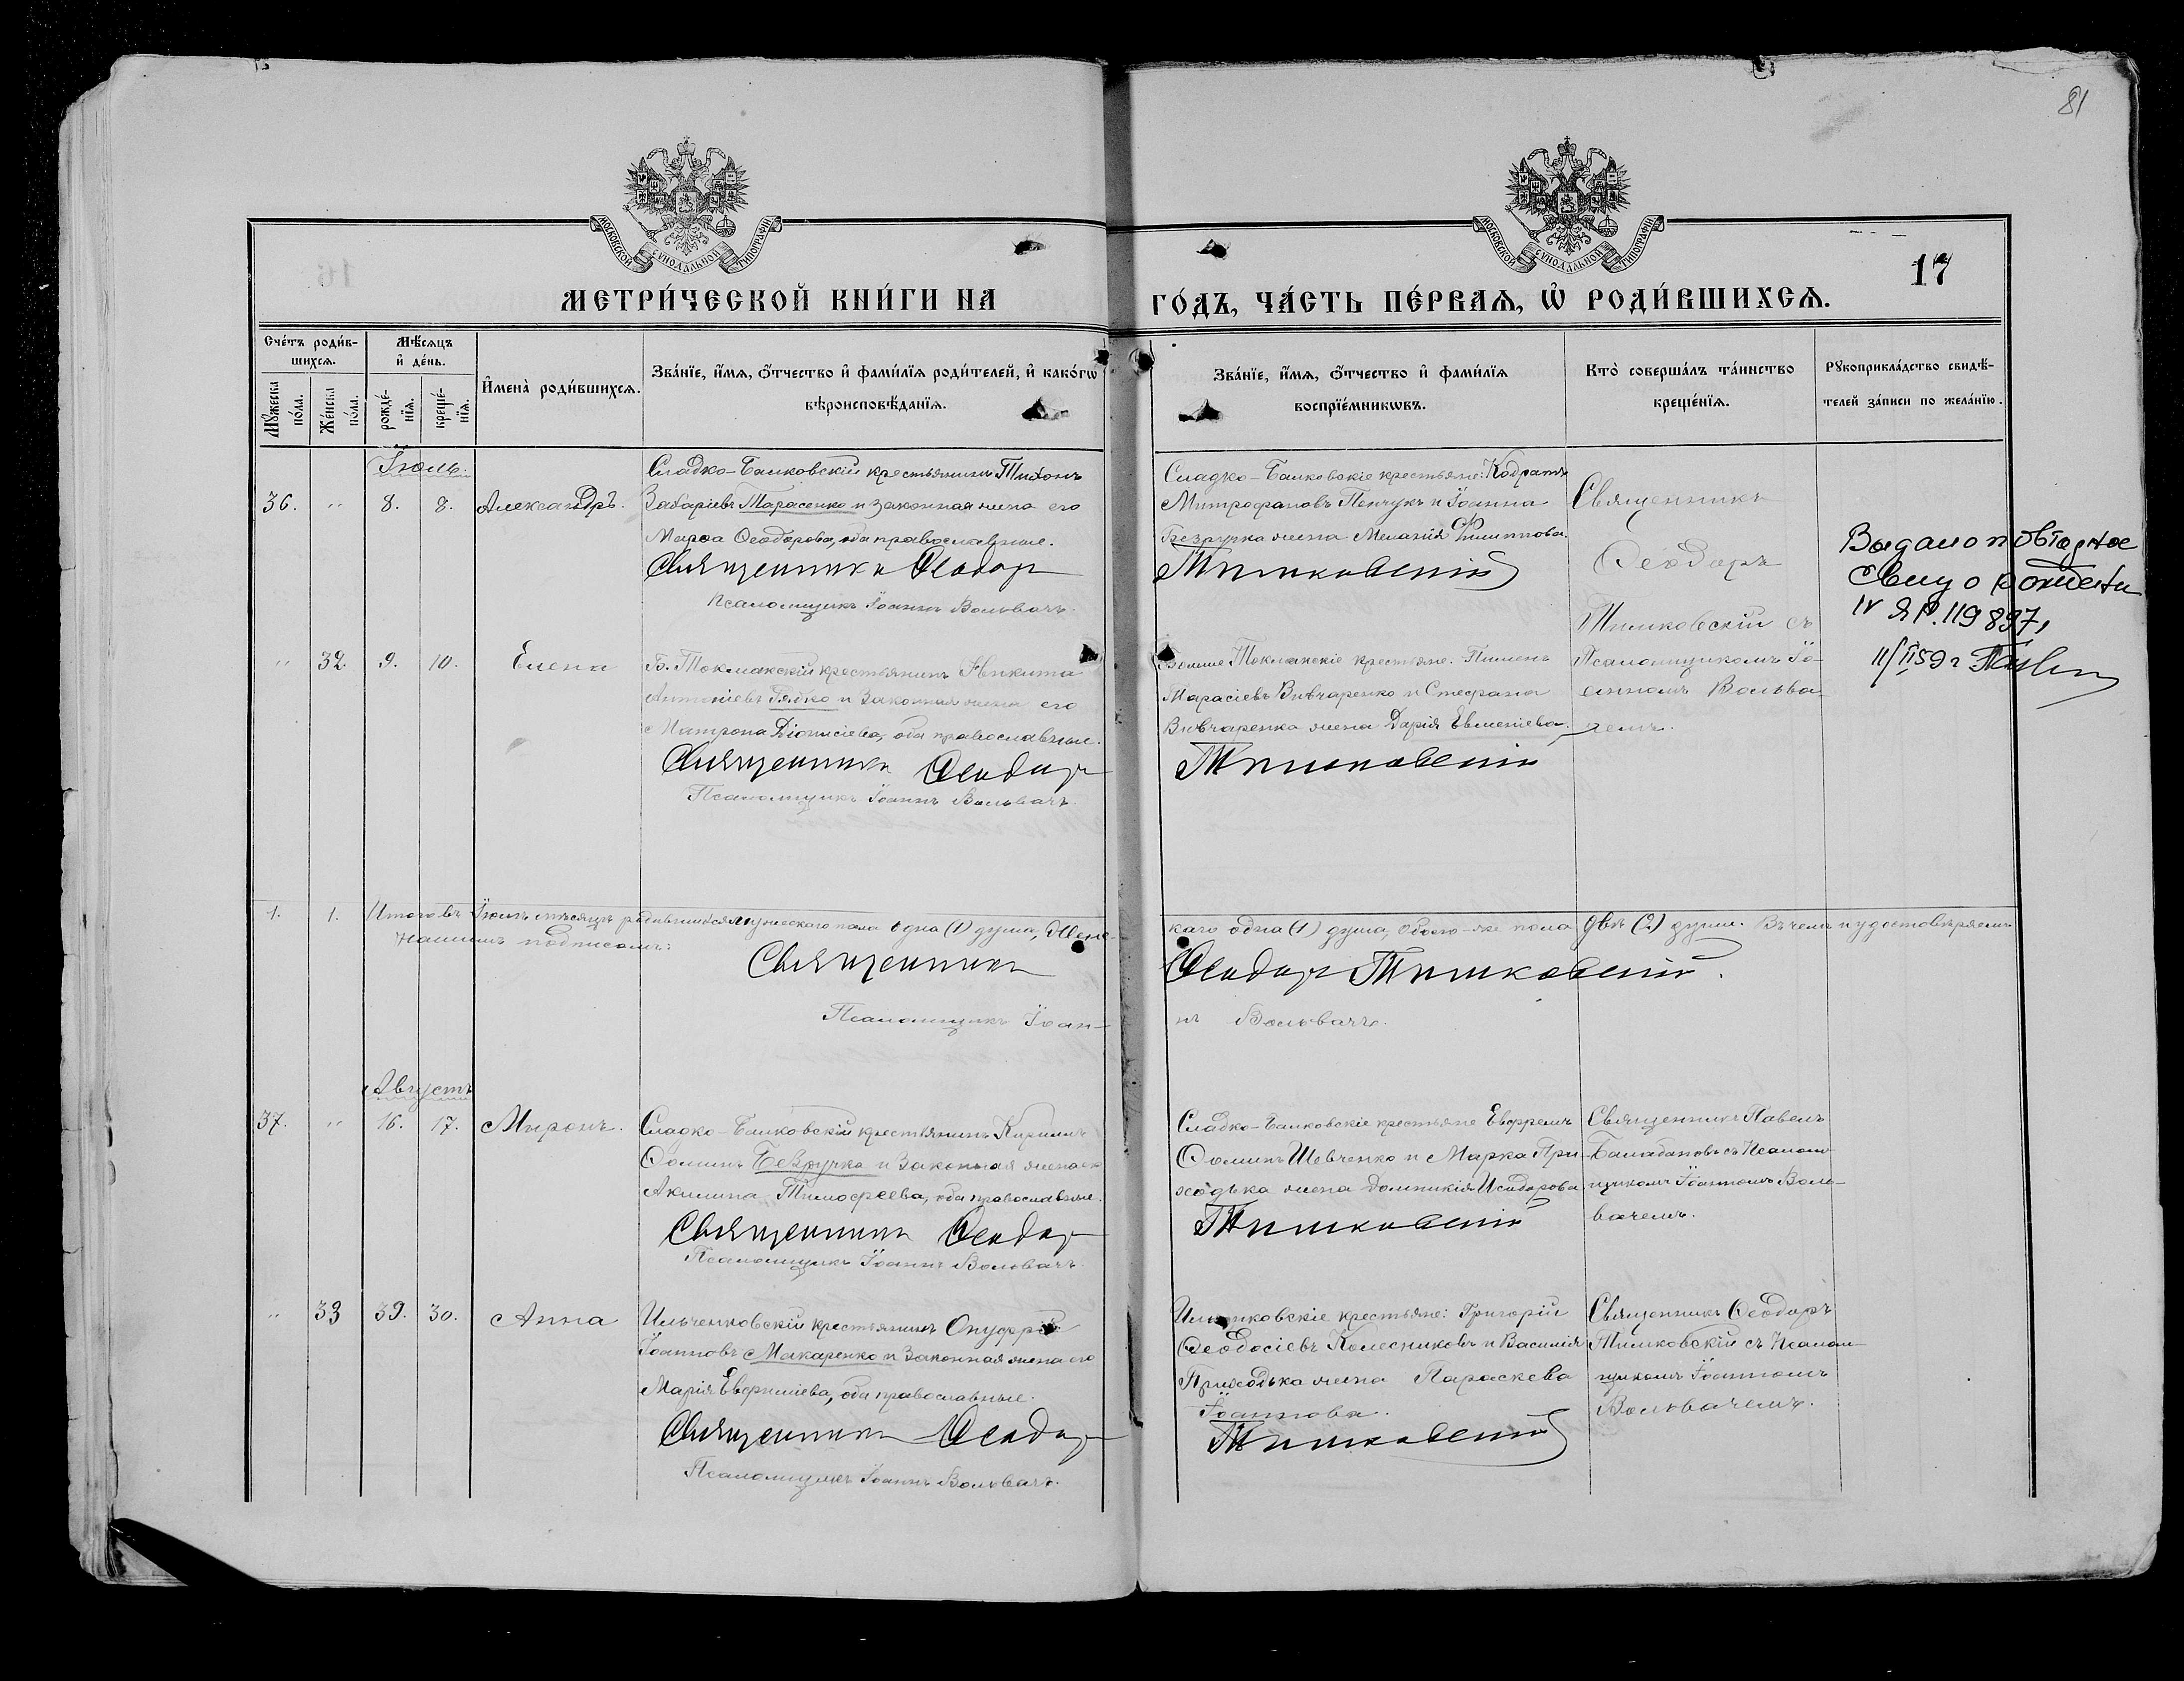 81
МОСКОВСКОЙ СѴНОДАЛЬНОЙ ТИПОГРАФІИ
МОСКОВСКОЙ СѴНОДАЛЬНОЙ ТИПОГРАФІИ
17
МЕТРИ́ЧЕСКОЙ КНИ́ГИ НА
ГО́ДЪ, ЧА́СТЬ ПЕ́РВАѦ, Ѡ҆ РОДИ́ВШИХСѦ.
Счётъ роди́в-
шихсѧ.
Мѣ́сѧцъ
и҆ де́нь.
Мꙋ́жеска
по́ла.
Же́нска
по́ла.
рожде́-
нїѧ.
креще́-
нїѧ.
И҆мена̀ роди́вшихсѧ.
Зва́нїе, и҆́мѧ, ѻ҆́тчество и҆ фами́лїѧ роди́телей, и҆ како́гѡ
вѣроисповѣ́данїѧ.
Зва́нїе, и҆́мѧ, ѻ҆́тчество и҆ фами́лїѧ
воспрїе́мникѡвъ.
Кто̀ соверша́лъ та́инство
креще́нїѧ.
Рꙋкоприкла́дство свидѣ́-
телей за́писи по жела́нїю.
Іюль.
36. " 8. 8. Александръ.
Сладко-Балковскій крестьянинъ Тихонъ
Захаріевъ Тарасенко и законная жена его
Марѳа Ѳеодорова, оба православные.
Священникъ Ѳеодоръ
Псаломщикъ Іоаннъ Вольвачъ.
Сладко-Балковскіе крестьяне: Кодратъ
Митрофановъ Пенчукъ и Іоанна
Безручка жена Меланія Филиппова.
Тимковскій
Священникъ
Ѳеодоръ
Тимковскій съ
Псаломщикомъ Іо-
анномъ Вольва-
чемъ.
Выдано повторное
свид о рождении
IV ЯР. 119897,
11/II 59 г
" 32 9. 10. Елена
Б. Токмакскій крестьянинъ Никита
Антоніевъ Гядко и законная жена его
Матрона Діонисіева, оба православные.
Священникъ Ѳеодоръ
Псаломщикъ Іоаннъ Вольвачъ.
Больше Токмакскіе крестьяне: Пименъ
Тарасіевъ Вивчаренко и Стефана
Вивчаренка жена Дарія Евменіева.
Тимковскій
1. 1. Итого въ Іюлѣ мѣсяцѣ родившихся мужескаго пола одна (1) душа, женс-
каго одна (1) душа, обоего-же пола двѣ (2) души. Въ чемъ и удостовѣряемъ
нашимъ подписомъ:
Священникъ
Ѳеодоръ Тимковскій.
Псаломщикъ Іоан-
нъ Вольвачъ.
Августъ
37. " 16. 17. Миронъ.
Сладко-Балковскій крестьянинъ Кириллъ
Ѳоминъ Безручко и законная жена его
Акилина Тимоѳеева, оба православные.
Священникъ Ѳеодоръ
Псаломщикъ Іоаннъ Вольвачъ.
Сладко-Балковскіе крестьяне Евфремъ
Ѳоминъ Шевченко и Марка При-
ходька жена Домникія Исидорова.
Тимковскій
Священникъ Павелъ
Балабановъ съ Псалом-
щикомъ Іоанномъ Воль-
вачемъ.
" 33 39. 30. Анна
Ильченковскій крестьянинъ Онуфрій
Іоанновъ Макаренко и законная жена его
Марія Евфиміева, оба православные.
Священникъ Ѳеодоръ
Псаломщикъ Іоаннъ Вольвачъ.
Ильченковскіе крестьяне: Григорій
Ѳеодосіевъ Колесниковъ и Василія
Приходька жена Параскева
Іоаннова.
Тимковскій
Священникъ Ѳеодоръ
Тимковскій съ Псалом-
щикомъ Іоанномъ
Вольвачемъ.